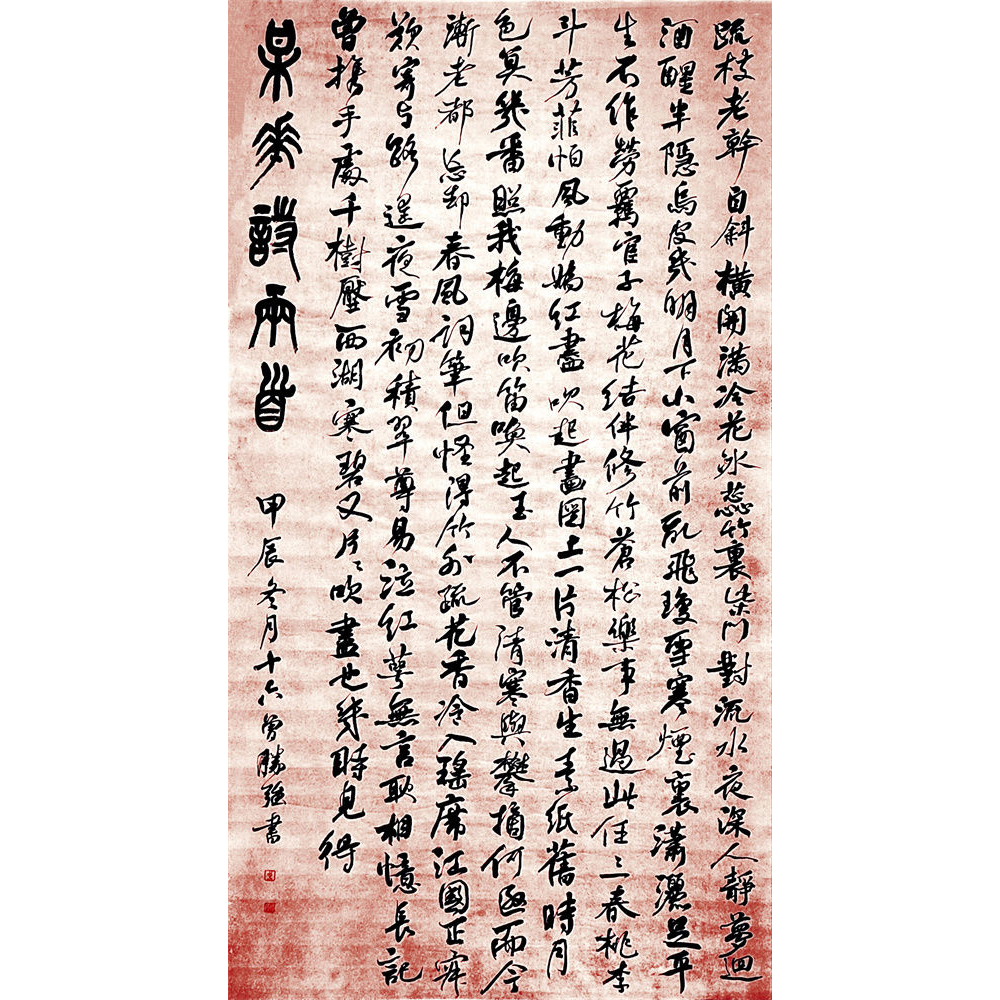 疏枝老幹自斜橫開滿冷花冰蕊竹裏柴門對流水夜深人靜夢迴
酒醒半隱烏皮幾明月下小窗前亂飛瓊雪寒煙裏瀟灑足平
生不作勞羈宦子梅花結伴修竹蒼松樂事無過此任三春桃李
斗芳菲怕風動嬌紅盡吹起畫圖上一片清香生素紙舊時月
色算幾番照我梅邊吹笛喚起玉人不管清寒與攀摘何遜而今
漸老都忘却春風詞筆但怪得竹外疏花香冷入瑤席江國正寂
歎寄与路遙夜雪初積翠尊易泣紅萼無言耿相憶長記
曾携手處千樹壓西湖寒碧又片片吹盡也幾時見得
某華詩兩首
甲辰冬月十六曾勝強書